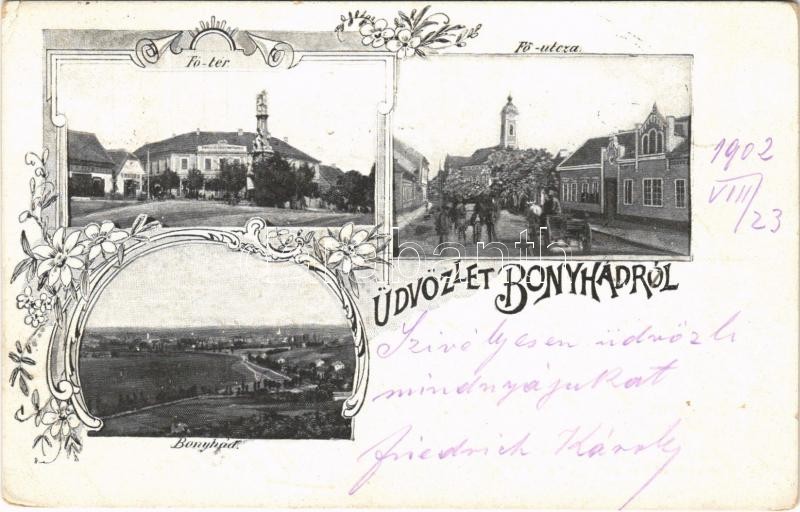 Fő-tér.
Fő-utcza.
1902
VIII/23
ÜDVÖZLET BONYHÁDRÓL
Szivélyesen üdvözli
mindnyájukat
Friedrich Károly
Bonyhád.